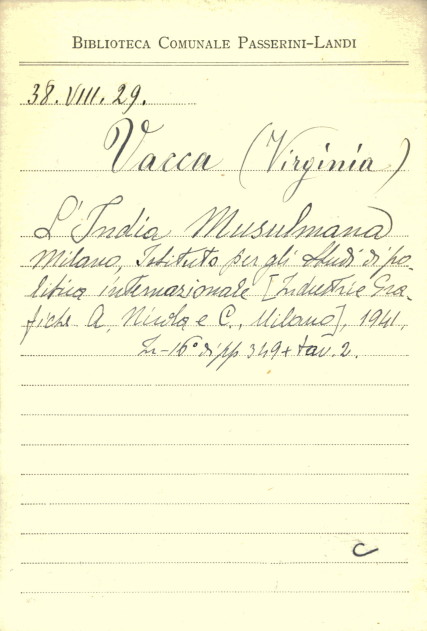 BIBLIOTECA COMUNALE PASSERINI-LANDI
38. VIII. 29.
Vacca (Virginia)
L'India Musulmana
Milano, Istituto per gli Studi di po-
litica internazionale [Industrie Gra-
fiche A. Nicola e C., Milano], 1941,
In-16° di pp 349 + tav. 2.
C